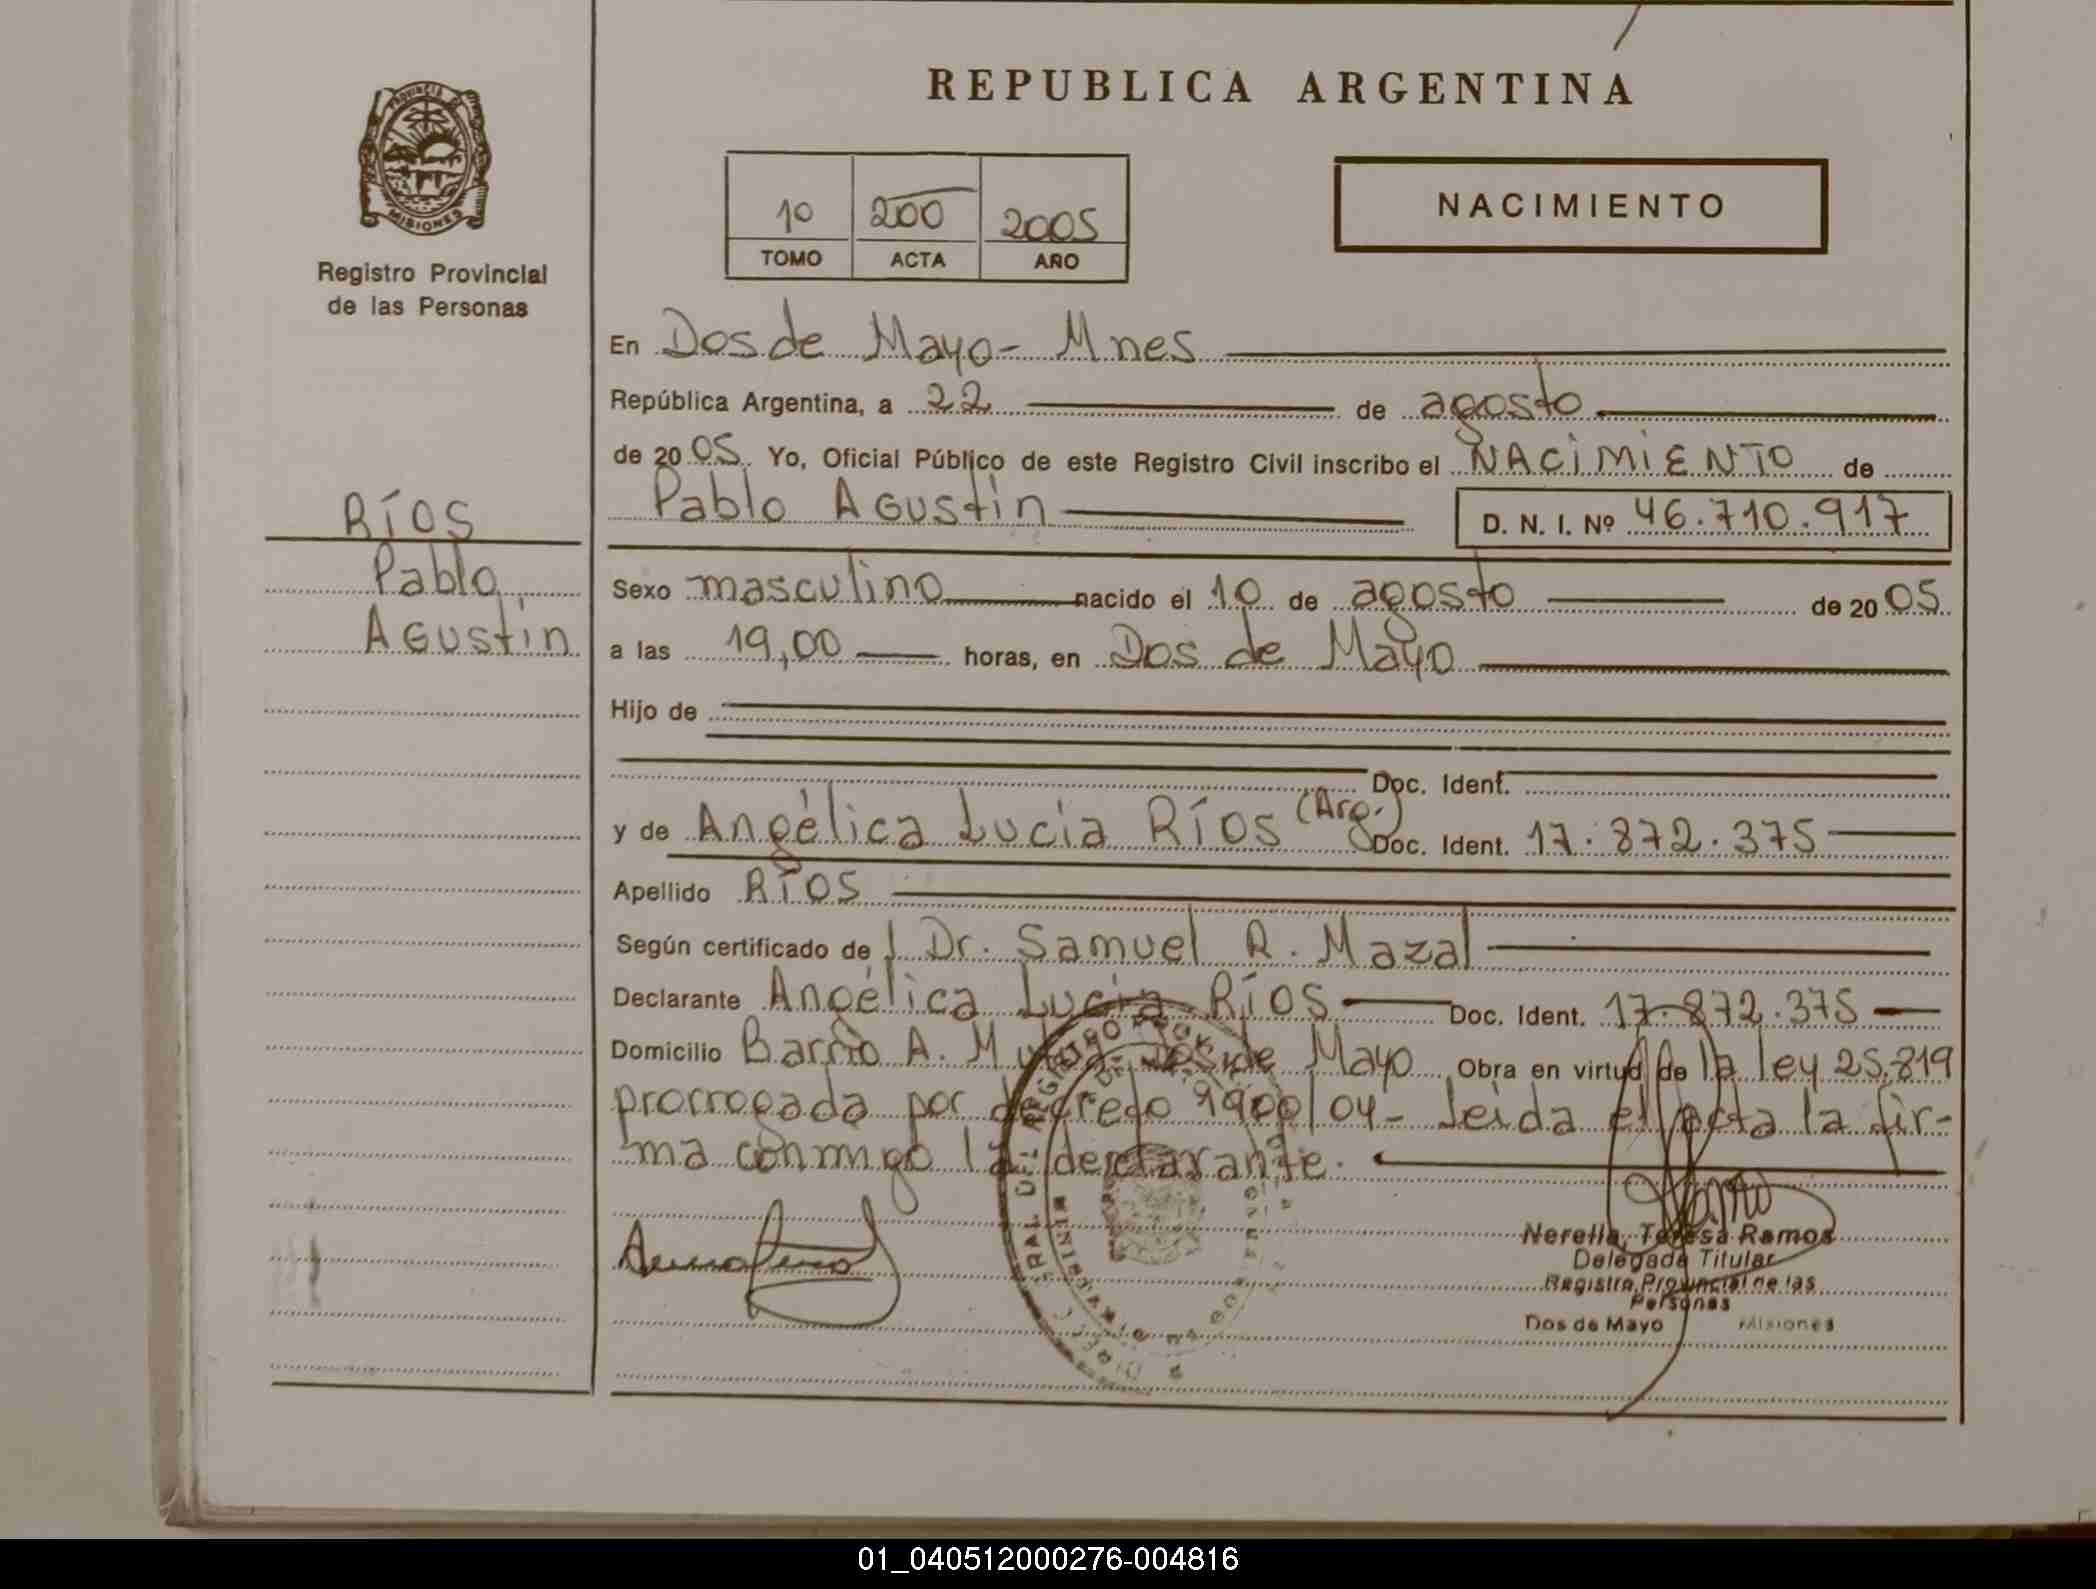 REPUBLICA ARGENTINA
PROVINCIA DE MISIONES
Registro Provincial
de las Personas
10 200 2005
TOMO ACTA AÑO
NACIMIENTO
En Dos de Mayo - Mnes
República Argentina, a 22 de agosto
de 2005 Yo, Oficial Público de este Registro Civil inscribo el NACIMIENTO de
Pablo Agustín D. N. I. Nº 46.710.917
RÍOS
Pablo
Agustín
Sexo masculino nacido el 10 de agosto de 2005
a las 19,00 horas, en Dos de Mayo
Hijo de
Doc. Ident.
y de Angélica Lucía Ríos (Arg.) Doc. Ident. 17.872.375
Apellido RÍOS
Según certificado de Dr. Samuel R. Mazal
Declarante Angélica Lucía Ríos Doc. Ident. 17.872.375
Domicilio Barrio A. Dos de Mayo Obra en virtud de la ley 25.819
prorrogada por decreto 1900/04- Leida el acta la fir-
ma conmigo la declarante.
Nerella, Teresa Ramos
Delegada Titular
Registro Provincial de las
Personas
Dos de Mayo Misiones
01_040512000276-004816